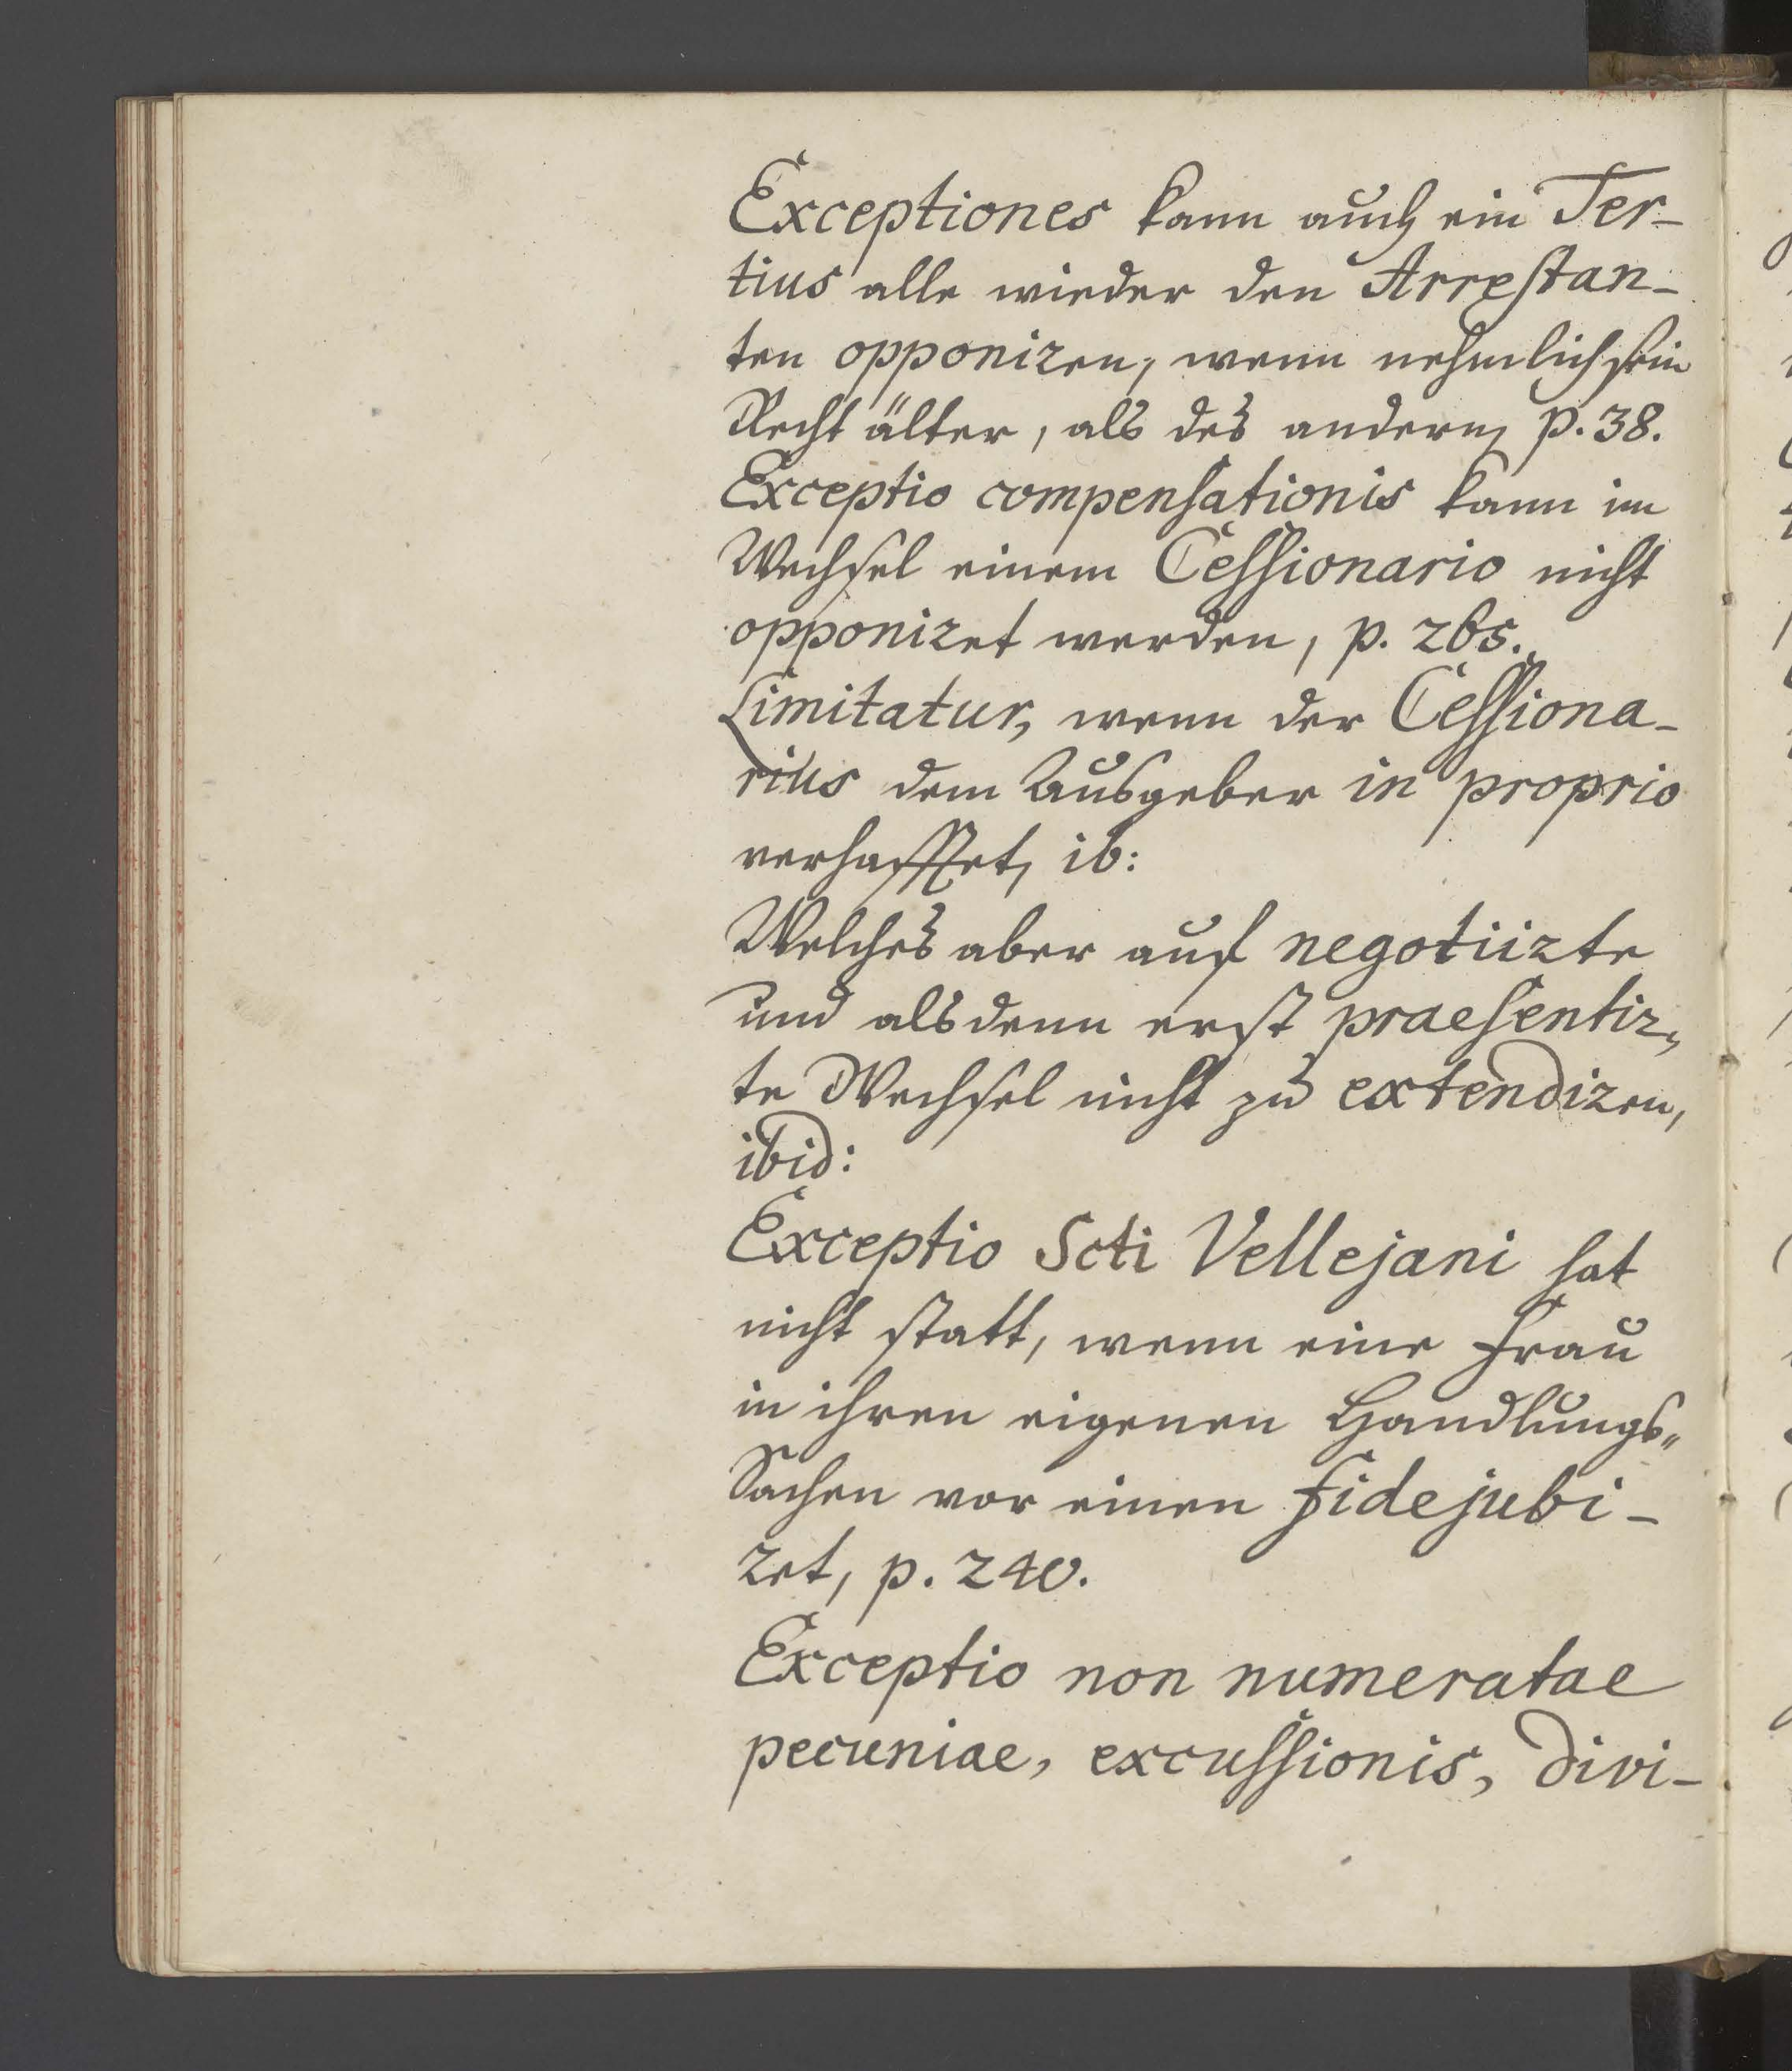 Exceptiones kann auch ein Ter-
tius alle wieder den Arrestan-
ten opponiren, wenn nehmlich sein
Recht älter, als des andern, p. 38.
Exceptio compensationis kann im
Wechsel einem Cessionario nicht
opponiret werden, p. 265.
Limitatur, wenn der Cessiona-
rius dem Ausgeber in proprio
verhafftet, ib:
Welches aber auf negotiirte
und alsdenn erst praesentir„
te Wechsel nicht zu extendiren,
ibid:
Exceptio Scti Vellejani hat
nicht statt, wenn eine Frau
in ihren eigenen Handlungs„
Sachen vor einen fidejubi-
ret, p. 240.
Exceptio non numeratae
pecuniae, excussionis, divi-